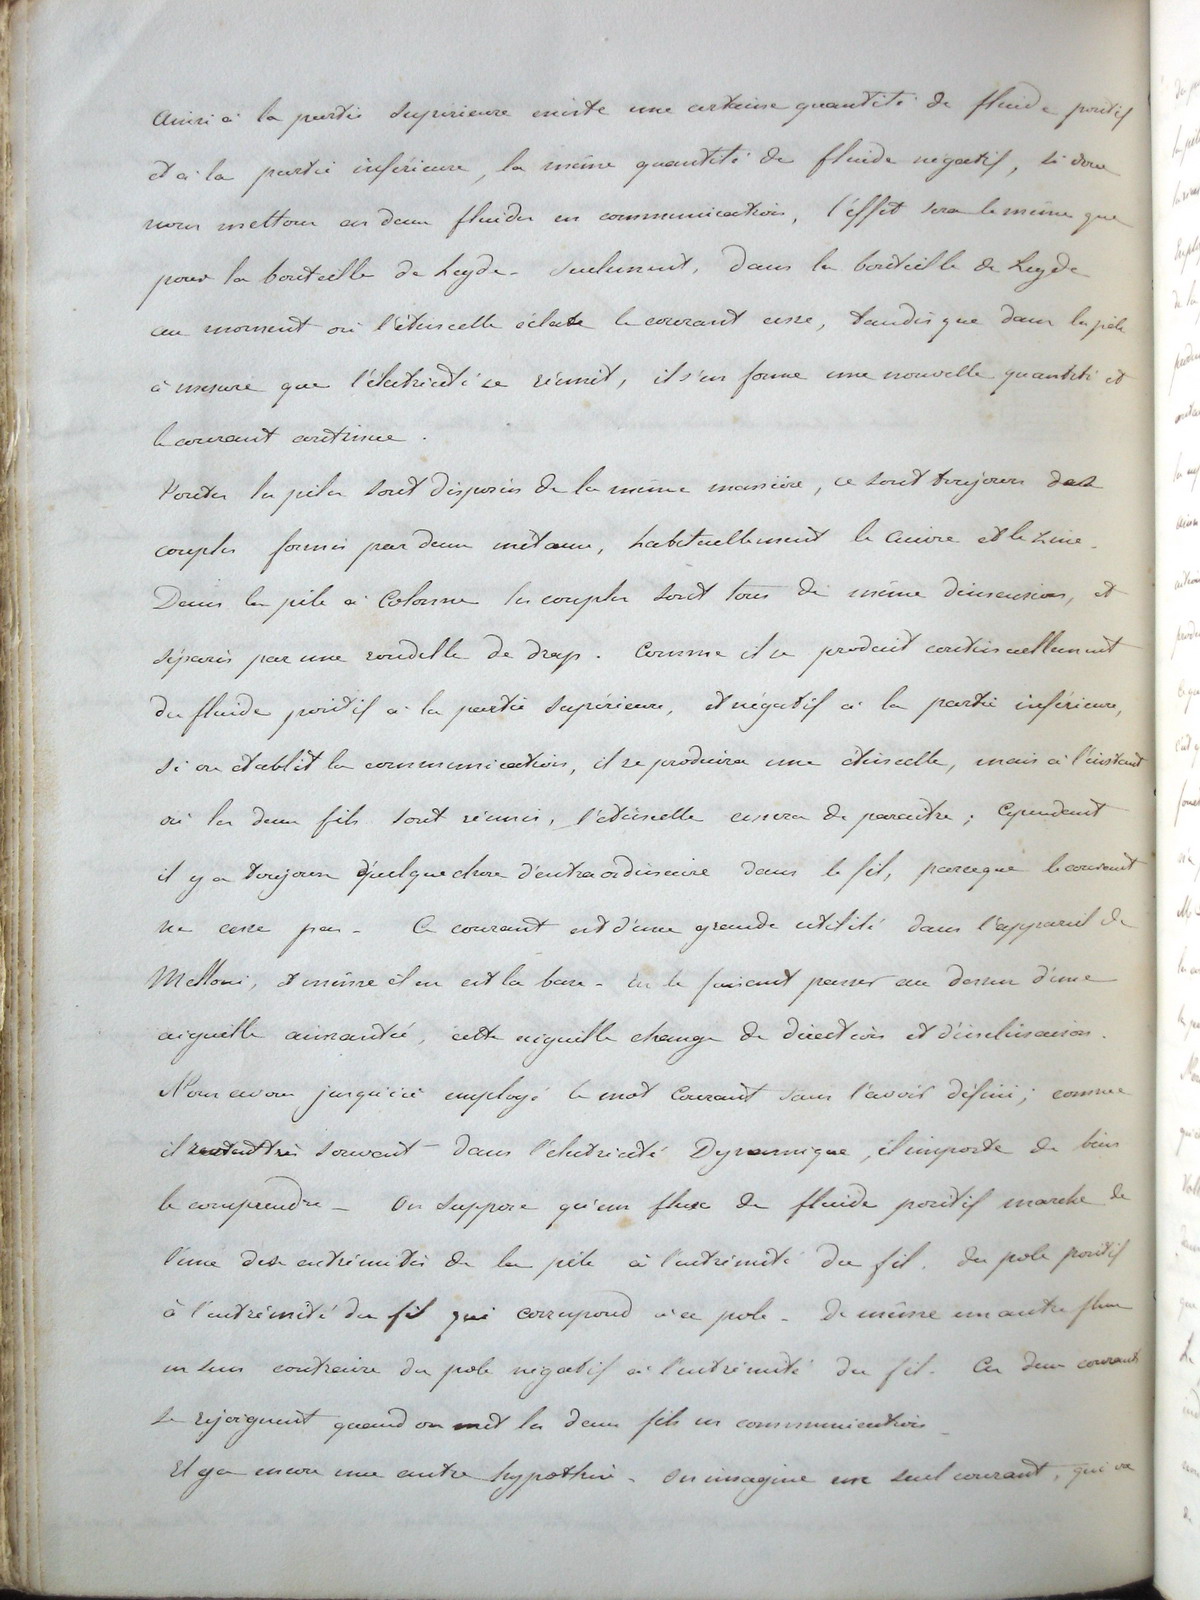 Ainsi à la partie supérieure existe une certaine quantité de fluide positif
et à la partie inférieure, la même quantité de fluide négatif, si donc
nous mettons ces deux fluides en communication, l'effet sera le même que
pour la bouteille de Leyde. Seulement, dans la bouteille de Leyde
au moment où l'étincelle éclate le courant cesse, tandis que dans la pile
à mesure que l'électricité se réunit, il s'en forme une nouvelle quantité et
le courant continue.
Toutes les piles sont disposées de la même manière, ce sont toujours des
couples formés par deux métaux, habituellement le Cuivre et le Zinc.
Dans la pile à Colonne les couples sont tous de même dimension, et
séparés par une rondelle de drap. Comme il se produit continuellement
du fluide positif à la partie supérieure, et négatif à la partie inférieure,
si on établit la communication, il se produira une étincelle, mais à l'instant
où les deux fils sont réunis, l'étincelle cessera de paraitre; Cependant
il y a toujours quelque chose d'extraordinaire dans le fil, parceque le courant
ne cesse pas. Ce courant est d'une grande utilité dans l'appareil de
Melloni, et même il en est la base. En le faisant passer au dessus d'une
aiguille aimantée, cette aiguille change de direction et d'inclinaison.
Nous avons jusqu'ici employé le mot Courant sans l'avoir défini; comme
il souvent dans l'électricité Dynamique, il importe de bien
le comprendre – On suppose qu'un flux de fluide positif marche de
l'une des extrémités de la pile à l'extrémité du fil. du pole positif
à l'extrémité du fil qui correspond à ce pole. De même un autre flux
en sens contraire du pole négatif à l'extrémité du fil. Ces deux courants
se rejoignent quand on met les deux fils en communication.
Il y a encore une autre hypothèse. On imagine un seul courant, qui va